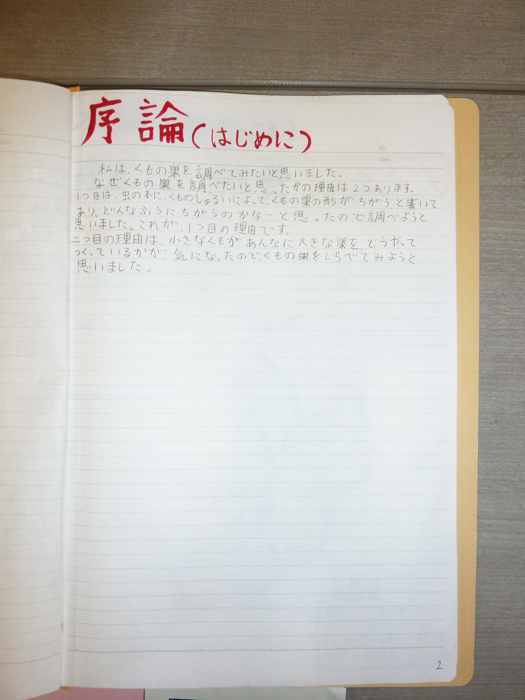 序論(はじめに)
私は、くもの巣を調べてみたいと思いました。
なぜくもの巣を調べたいと思ったかの理由は2つあります。
1つ目は、虫の本に、くものしゅるいによって、くもの巣の形がちがうと書いて
あり、どんなふうにちがうのかなーと思ったので調べようと
思いました。これが、1つ目の理由です。
二つ目の理由は、小さなくもがあんなに大きな巣を、どうやって
つくっているかが気になったのでくもの巣をしらべてみようと
思いました。
2